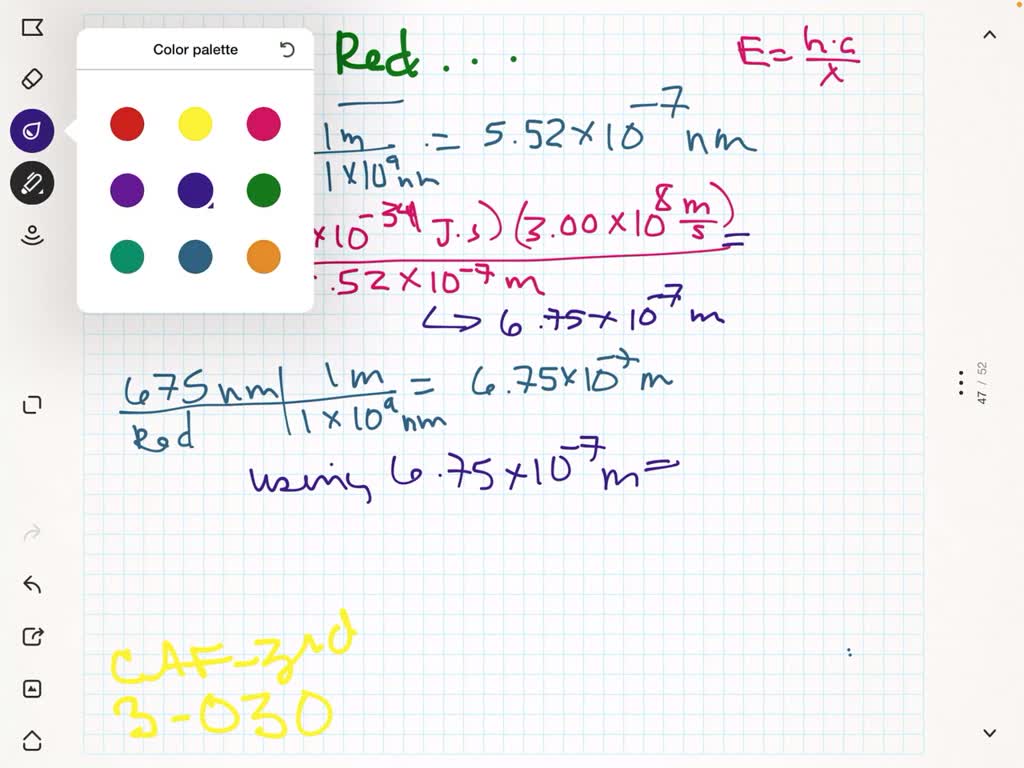 Color palette
Red...
E = h·c / λ
1 m / 1 × 10⁹ nm = 5.52 × 10⁻⁷ nm
× 10⁻³⁴ J.s) (3.00 × 10⁸ m/s) =
.52 × 10⁻⁷ m
↳ 6.75 × 10⁻⁷ m
675 nm | 1 m = 6.75 × 10⁻⁷ m
Red | 1 × 10⁹ nm
using 6.75 × 10⁻⁷ m =
47 / 52
CAF-3rd
3-030